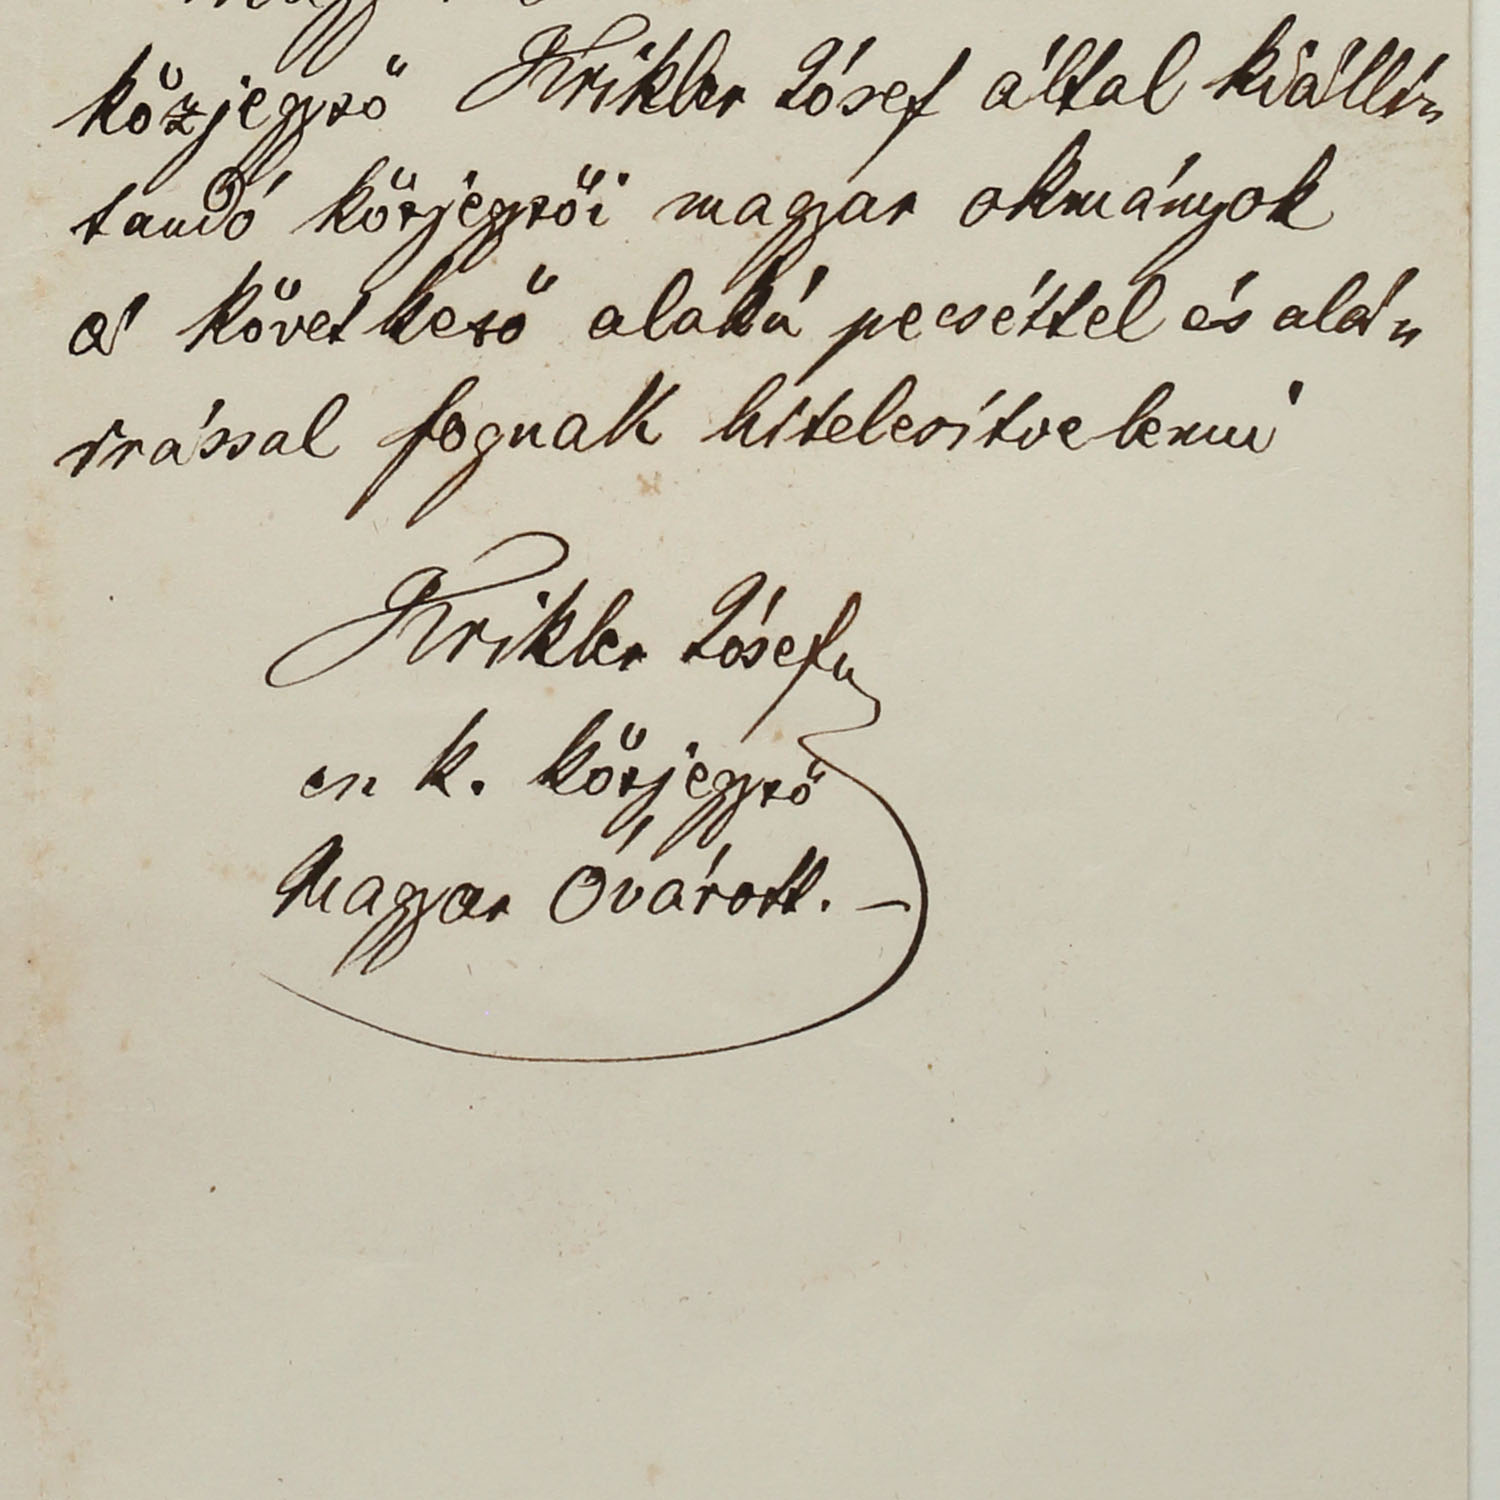 közjegyző Krikler Jósef által kiállí„
tandó közjegyzői magyar okmányok
a' következő alakú pecséttel és alá„
irással fognak hitelesítve lenni
Krikler Jósef
m k. közjegyző
Magyar Óvárott. —